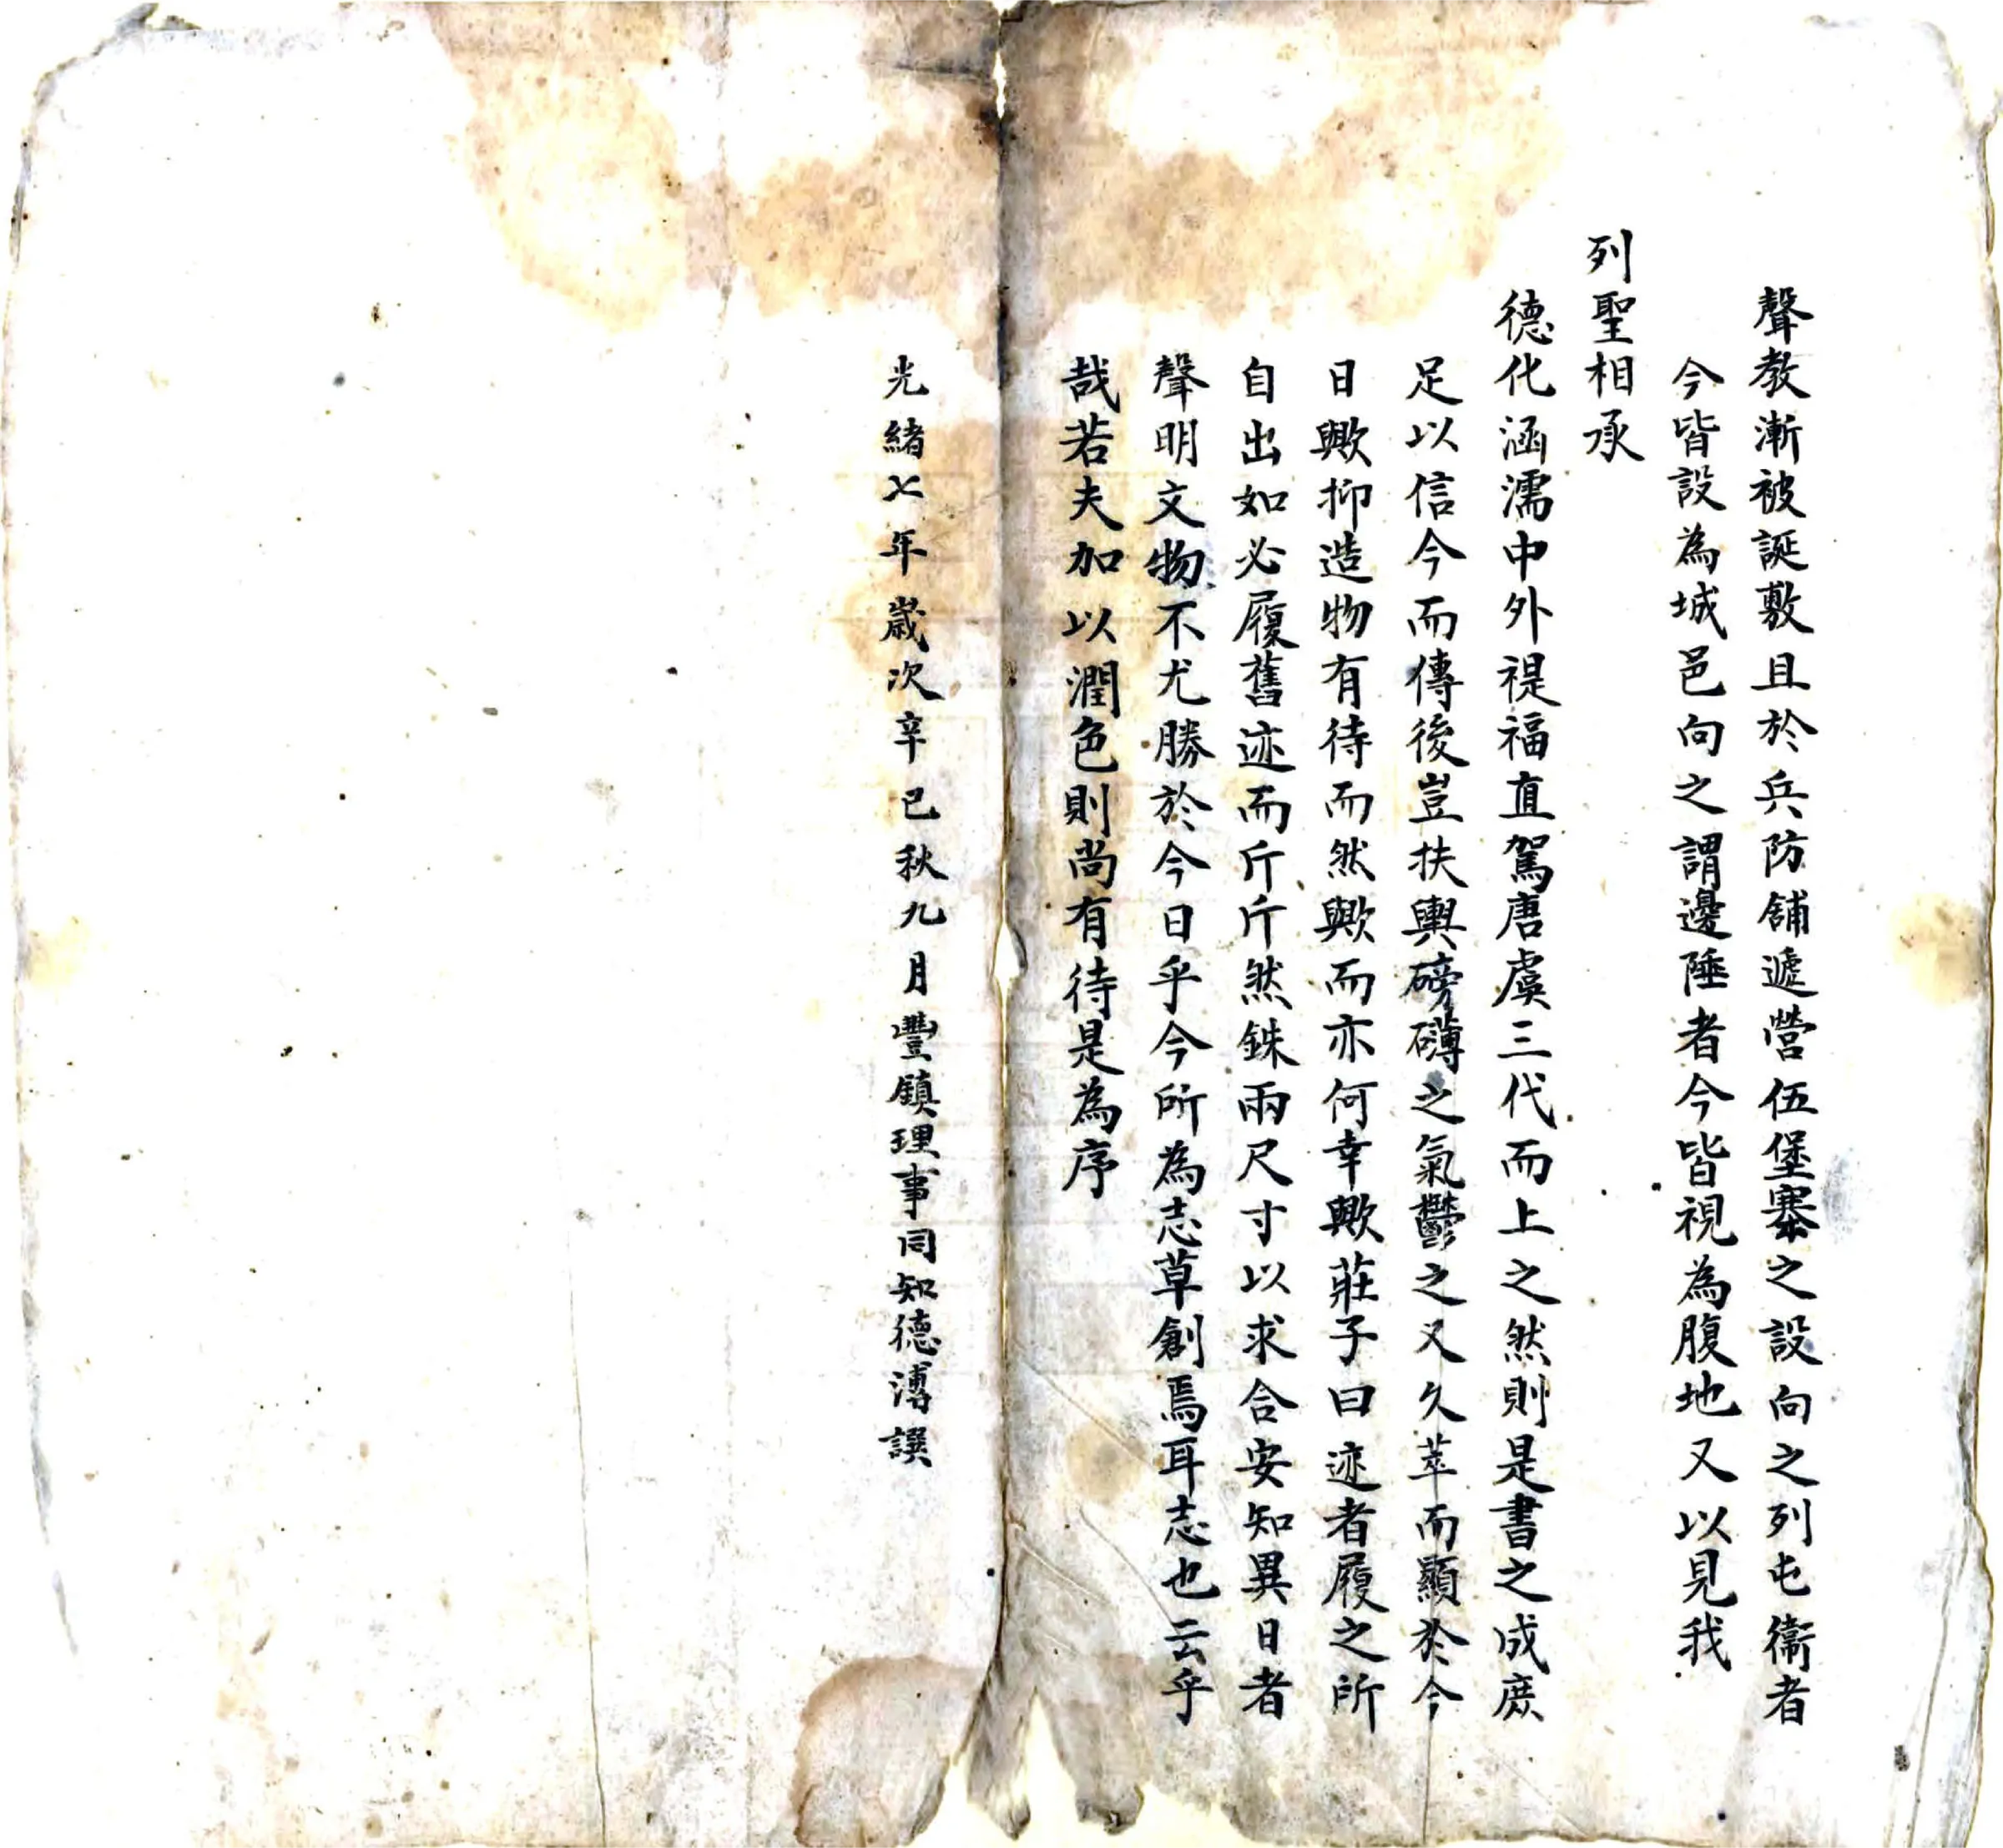 聲教漸被誕敷且於兵防舖遞營伍堡寨之設向之列屯衞者
今皆設為城邑向之謂邊陲者今皆視為腹地又以見我
列聖相承
德化涵濡中外禔福直駕唐虞三代而上之然則是書之成庶
足以信今而傳後豈扶輿磅礴之氣鬱之又久萃而顯於今
日歟抑造物有待而然歟而亦何幸歟莊子曰迹者履之所
自出如必履舊迹而斤斤然銖兩尺寸以求合安知異日者
聲明文物不尤勝於今日乎今所為志草創焉耳志也云乎
哉若夫加以潤色則尚有待是為序
光緒七年歲次辛巳秋九月豐鎮理事同知德溥譔